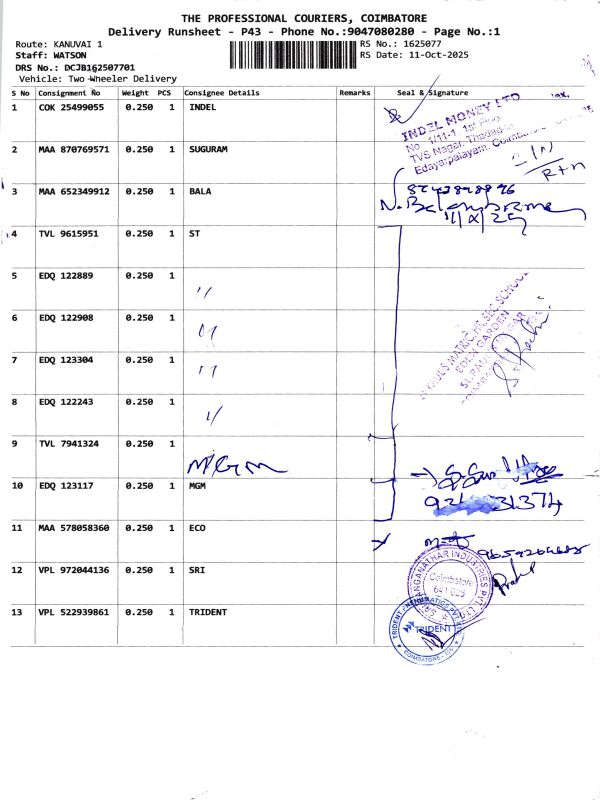 THE PROFESSIONAL COURIERS, COIMBATORE
Delivery Runsheet - P43 - Phone No.:9047080280 - Page No.:1
Route: KANUVAI 1
Staff: WATSON
DRS No.: DCJB162507701
Vehicle: Two Wheeler Delivery
RS No.: 1625077
RS Date: 11-Oct-2025
S No Consignment No Weight PCS Consignee Details Remarks Seal & Signature
1 COK 25499055 0.250 1 INDEL
INDEL MONEY LTD
No 1/11-1, 1st Floor
TVS Nagar, Thadagam
Edayarpalayam, Coimbatore
2 MAA 870769571 0.250 1 SUGURAM
R+n
3 MAA 652349912 0.250 1 BALA
11/X/25
4 TVL 9615951 0.250 1 ST
5 EDQ 122889 0.250 1
"
6 EDQ 122908 0.250 1
"
7 EDQ 123304 0.250 1
"
8 EDQ 122243 0.250 1
"
MATRIC.HR.SEC.SCHOOL
EDEN GARDEN
9 TVL 7941324 0.250 1
MGM
10 EDQ 123117 0.250 1 MGM
11 MAA 578058360 0.250 1 ECO
12 VPL 972044136 0.250 1 SRI
RANGANATHAR INDUSTRIES PVT LTD
Coimbatore
641 025
13 VPL 522939861 0.250 1 TRIDENT
TRIDENT PNEUMATICS PVT. LTD
TRIDENT
COIMBATORE